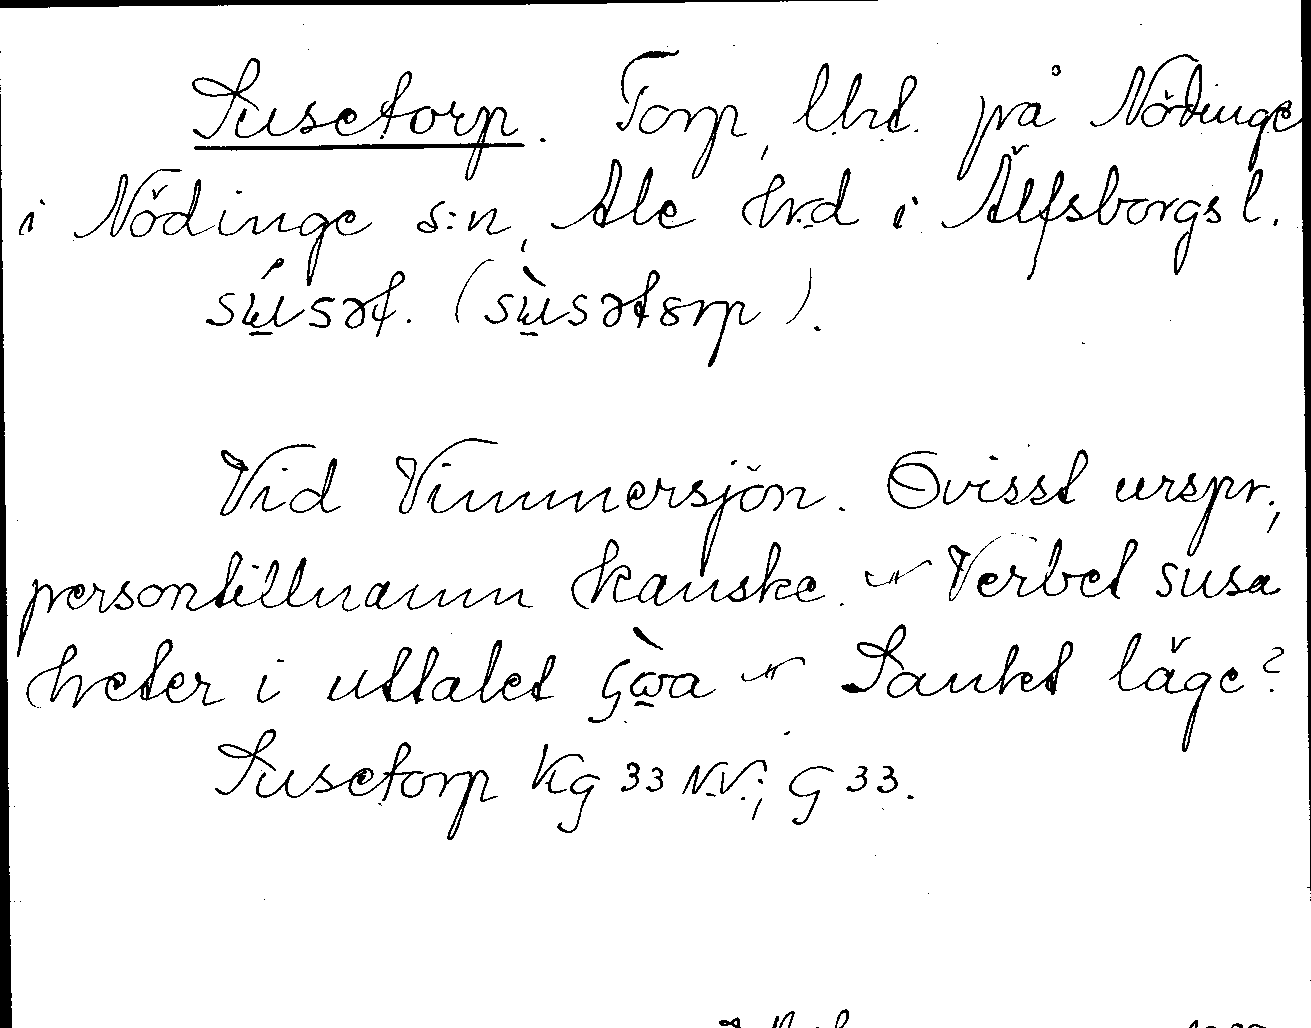 Susetorp. Torp, lht. på Nödinge
i Nödinge s:n, Ale hrd i Älfsborgs l.
sɯ́sət. (sɯ̀sətɔrp).
Vid Vimmersjön. Ovisst urspr.,
persontillnamn kanske. – Verbet susa
heter i uttalet – Sankt läge?
Susetorp Kg 33 N.V.; G 33.